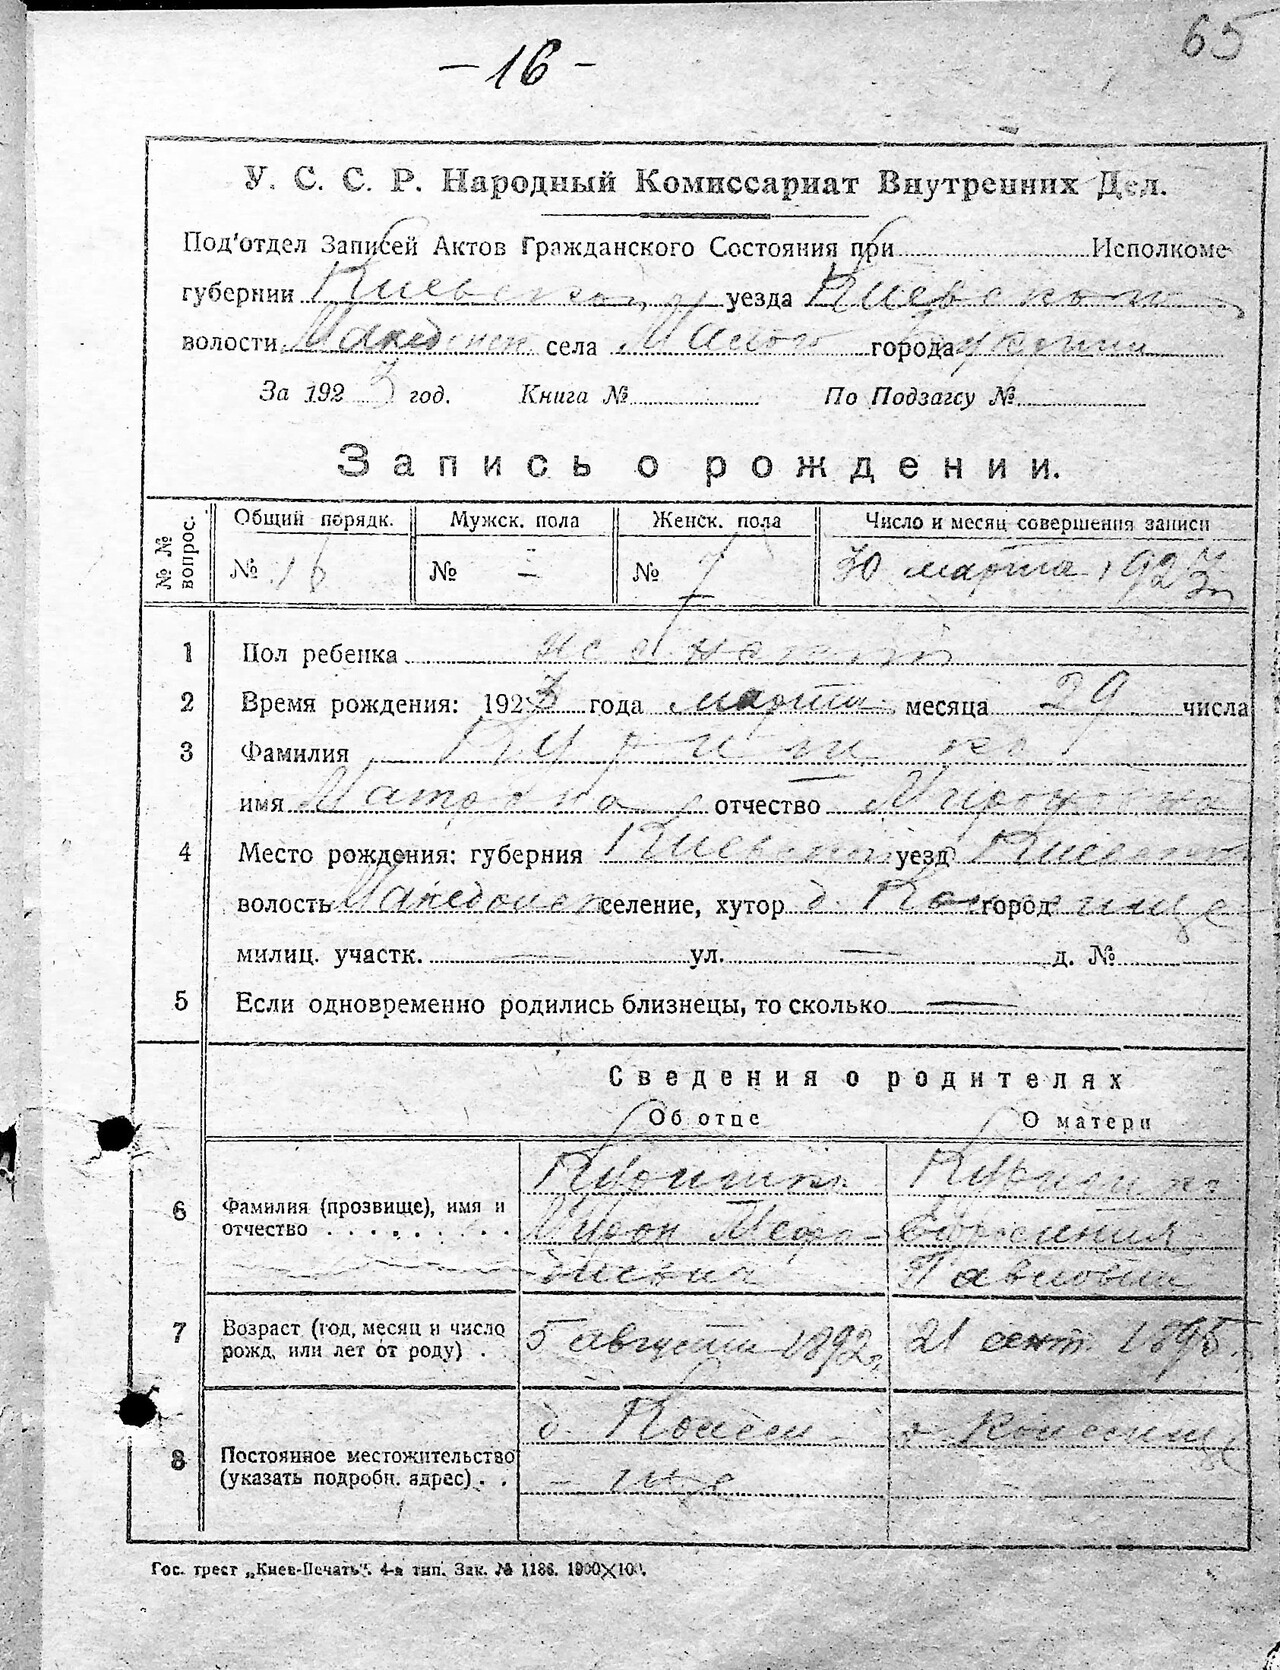 65
- 16 -
У. С. С. Р. Народный Комиссариат Внутренних Дел.
Под'отдел Записей Актов Гражданского Состояния при Исполкоме
губернии Киевской уезда Киевского
волости Македонск. села города
За 1923 год. Книга № По Подзагсу №
Запись о рождении.
№ № вопрос.
Общий порядк. Мужск. пола Женск. пола Число и месяц совершения записи
№ 16 № — № 7 30 марта 1923
1 Пол ребенка женский
2 Время рождения: 1923 года марта месяца 29 числа
3 Фамилия
имя Матрона отчество Мироновна
4 Место рождения: губерния Киевская уезд Киевский
волость Македонск селение, хутор д. город
милиц. участк. — ул. — д. № —
5 Если одновременно родились близнецы, то сколько —
Сведения о родителях
Об отце О матери
6 Фамилия (прозвище), имя и отчество
Мирон Мефо-
диевич
Ефросиния
Павловна
7 Возраст (год, месяц и число рожд. или лет от роду) 5 августа 1892 г. 21 сент. 1895
8 Постоянное местожительство (указать подробн. адрес)
Гос. трест „Киев-Печать“. 4-я тип. Зак. № 1186. 1900×100.